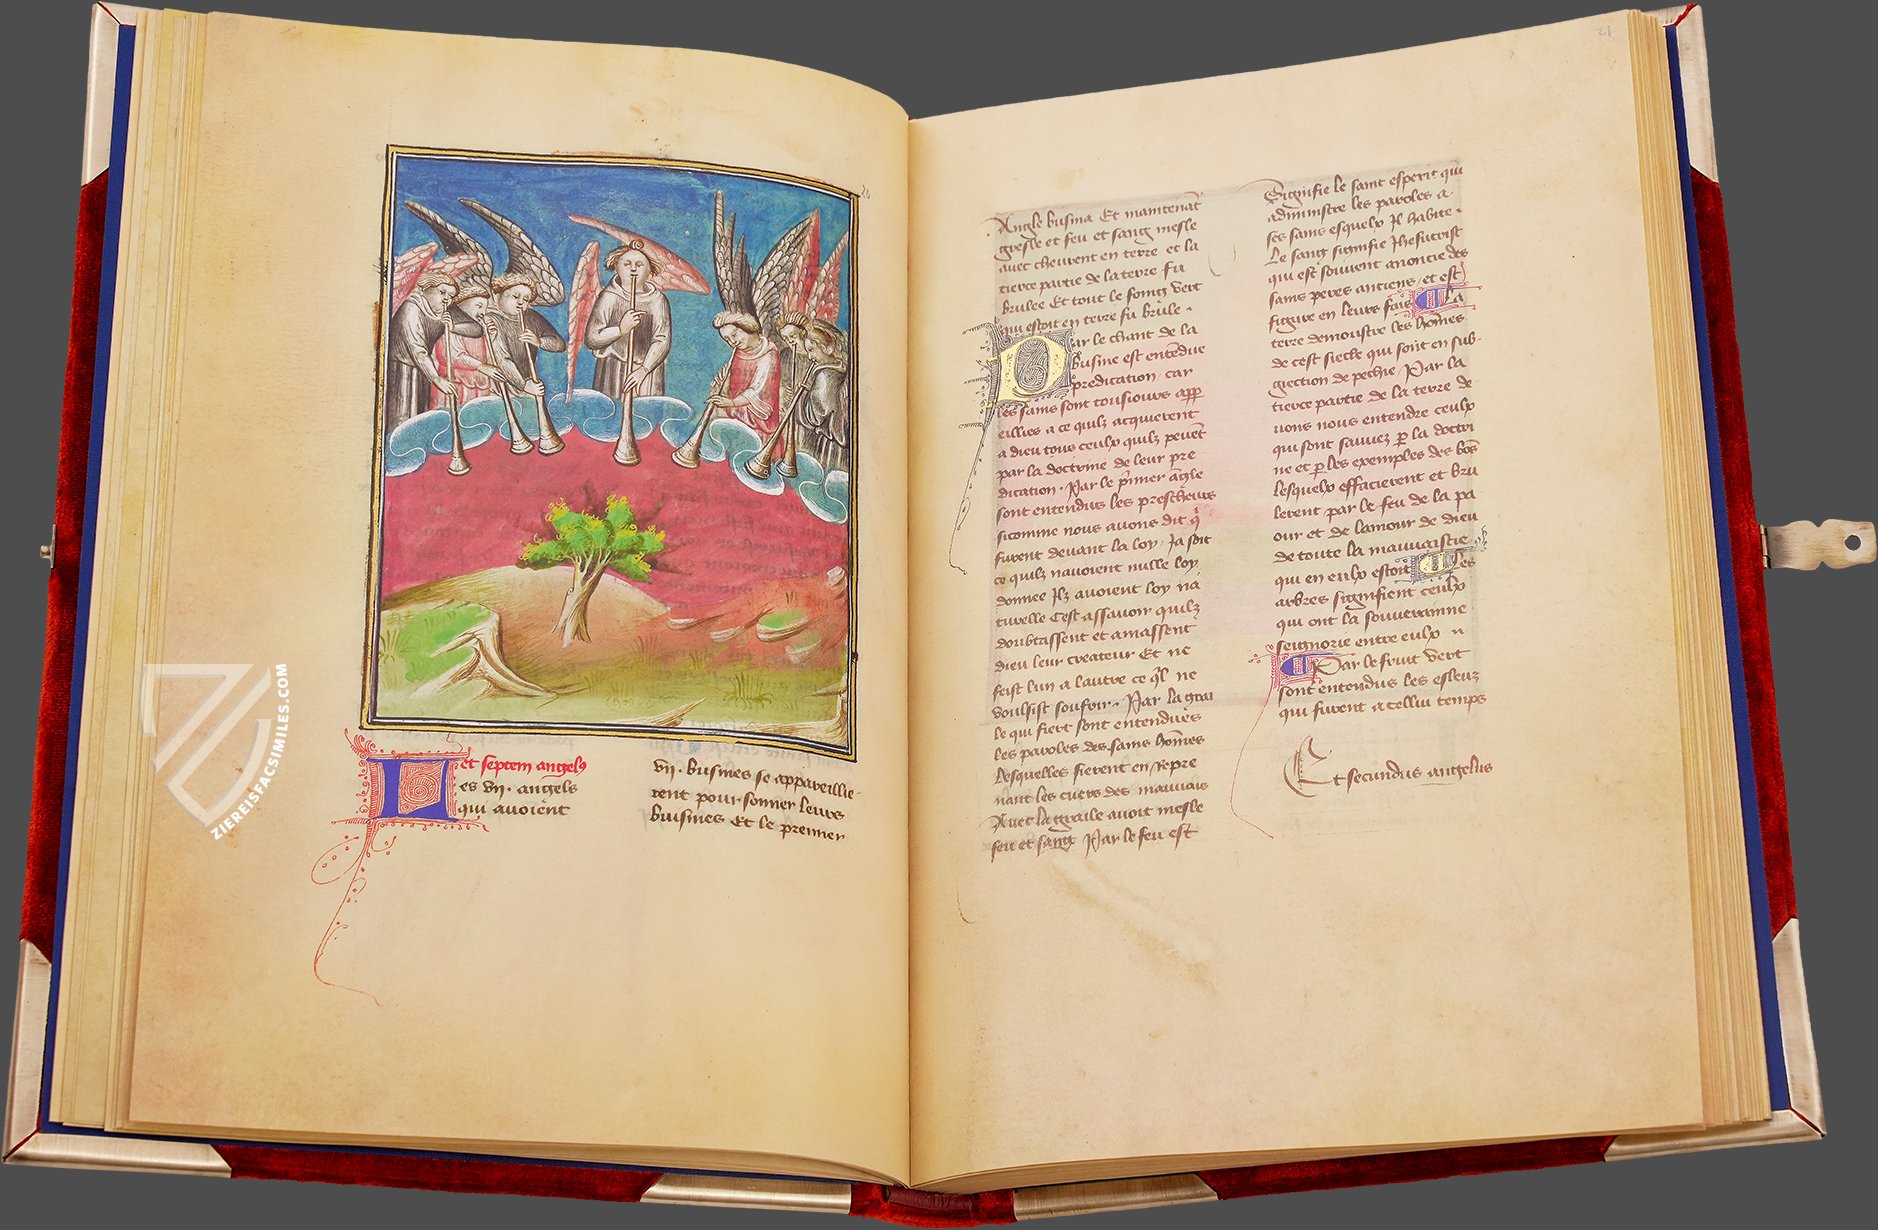 20
et septem angel9
es vii. angels
qui avoient
vii. busines se appareillie-
rent pour sonner leurs
busines Et le premier
ZIEREISFACSIMILES.COM
21
Angle busina Et maintenāt
gresle et feu et sang mesle
avec cheurent en terre et la
tierce partie de la terre fu
brulee Et tout le foing vert
qui estoit en terre fu brule.
Par le chant de la
busine est entēdue
predication car
les sains sont tousiours app
eillies a ce quilz acquierent
a dieu tous ceulx quilz peuēt
par la doctrine de leur pre
dication. Par le p̄mier āgle
sont entendus les prescheurs
sicomme nous avons dit q̄
furent devant la loy. Ja soit
ce quilz navoient nulle loy
donnee Ilz avoient loy na
turelle Cest assavoir quilz
doubtassent et amassent
dieu leur createur Et ne
feist lun a lautre ce q̄l ne
voulsist souffrir. Par la grai
le qui fiert sont entendues
les paroles des sains hōmes
lesquelles fierent en repre
nant les cuers des mauvais
Avec la graile avoit mesle
feu et sang Par le feu est
Signifie le saint esperit qui
administre les paroles a
ses sains esquelx Il habite.
Le sang signifie Jhesucrist
qui est souvent anoncie des
sains peres anciens, et est
figure en leurs fais La
terre demonstre les hōmes
de cest siecle qui sont en sub-
giection de pechie Par la
tierce partie de la terre de
vons nous entendre ceulx
qui sont sauvez p̄ la doctri
ne et p̄ les exemples des bōs
lesquelx effacierent et bru
lerent par le feu de la pa
our et de lamour de dieu
de toute la mauvaistie
qui en eulx estoit Les
arbres signifient ceulx
qui ont la souveraine
seignorie entre eulx
Par le fruit vert
sont entendus les esleuz
qui furent a celluy temps
Et secundus angelus